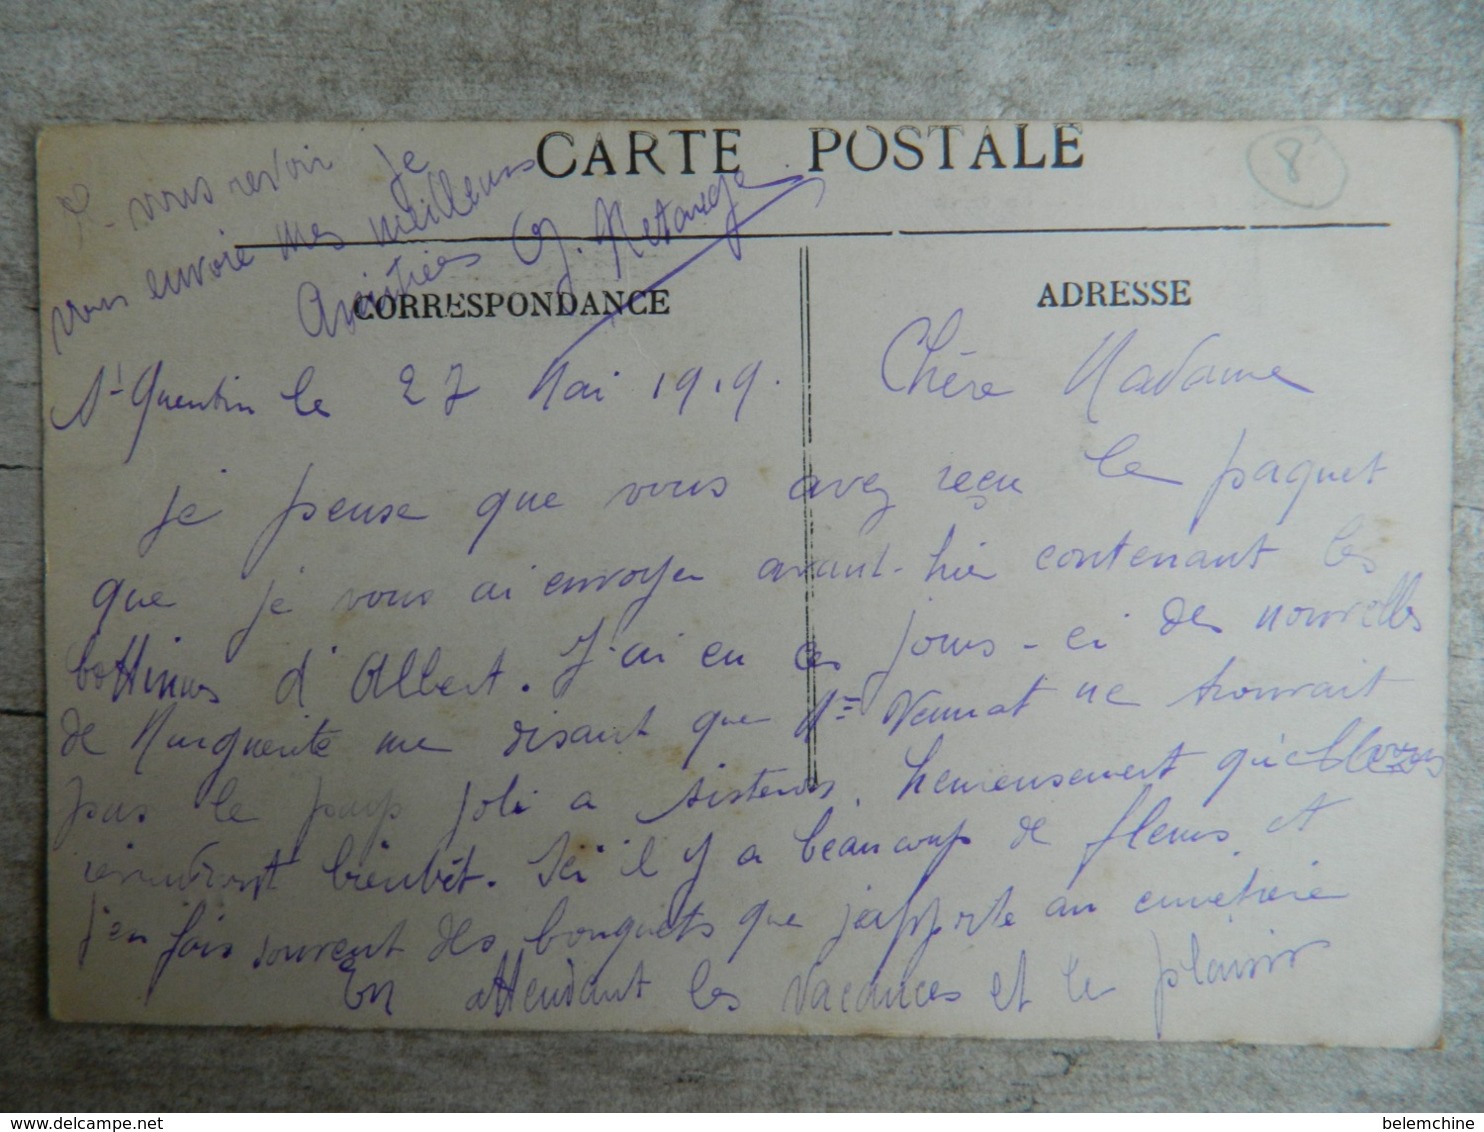 CARTE POSTALE
8
CORRESPONDANCE
ADRESSE
St Quentin le 27 Mai 1919.
Chère Madame
je pense que vous avez reçu le paquet
que je vous ai envoyer avant-hier contenant les
bottines d'Albert. J'ai eu ces jours-ci des nouvelles
de Marguerite me disant que Me Vennat ne trouvait
pas le pays joli a Sisteron. heureusement qu'elle
reviendront bientôt. Ici il y a beaucoup de fleurs et
j'en fais souvent des bouquets que j'apporte au cimetière
En attendant les vacances et le plaisir
de vous revoir je
vous envoie mes meilleurs
Amitiées G.
belemchine